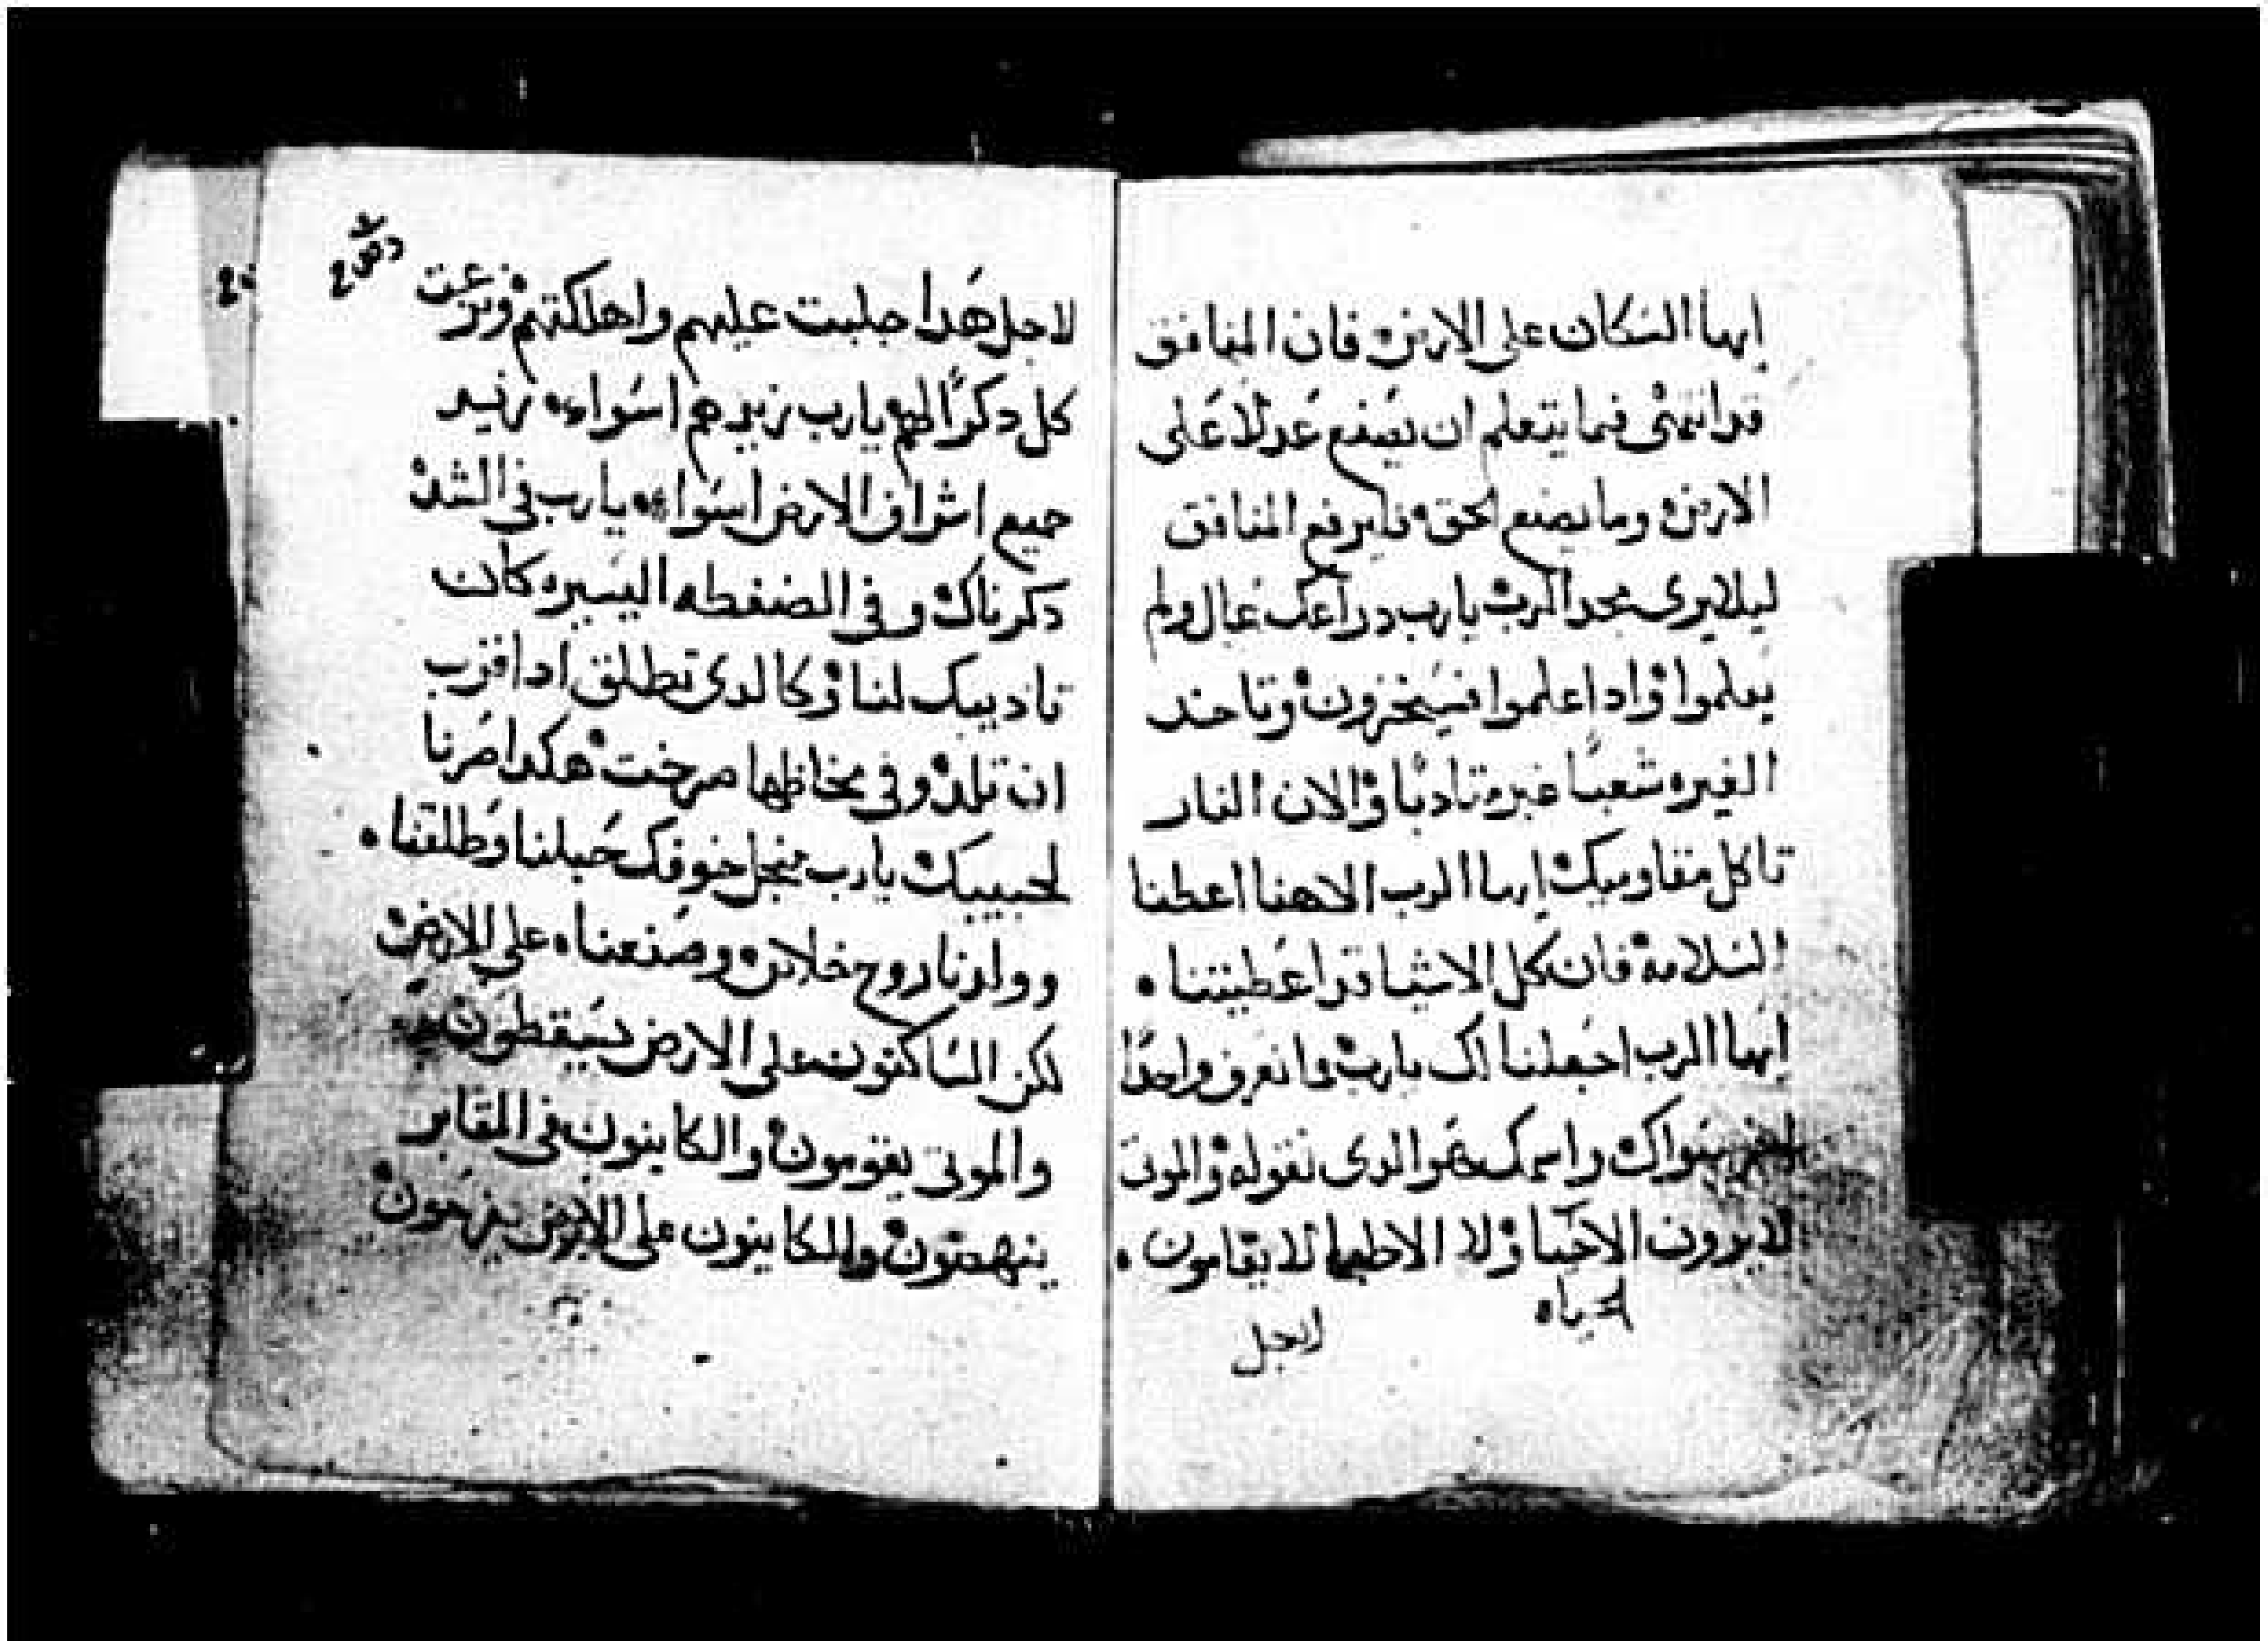 ايها السكان على الارض فان المنافق
قد انتهى فما يتعلم ان يصنع عدلاً على
الارض وما يصنع الحق فليرفع المنافق
ليلا يرى مجد الرب يارب دراعك عال ولم
يعلموا واداعلموا فسيخزون وتاخد
الغيره شعبًا غير تادبا والان النار
تاكل مقاوميك ايها الرب الاهنا اعطنا
السلامه فان كل الاشيا قد اعطيتنا
ايها الرب اجعلنا لك يارب ما نعرف واحدًا
اخر سواك واسمك هو الدى نقوله والموتى
لا يرون الاحيا ولا الاطبا لا يقامون
الحياه
لاجل
لاجل هدا جلبت عليهم واهلكتهم ونزعت
كل دكرًا لهم يارب زيدهم اسواء زيد
جميع اشراف الارض اسواء يارب فى الشده
دكرناك وفى الضغطه اليسيره كان
تاديبك لنا وكالدى تطلق ادا قرب
ان تلد وفى مخاظها صرخت هكدا صرنا
لحبيبك يارب منجل خوفك حبلنا وطلقنا
وولدنا روح خلاص وصنعناه على الارض
لكن الساكنون على الارض يسقطون
والموتى يقومون والكاينون فى المقابر
ينهضون والكاينون على الارض يفرحون